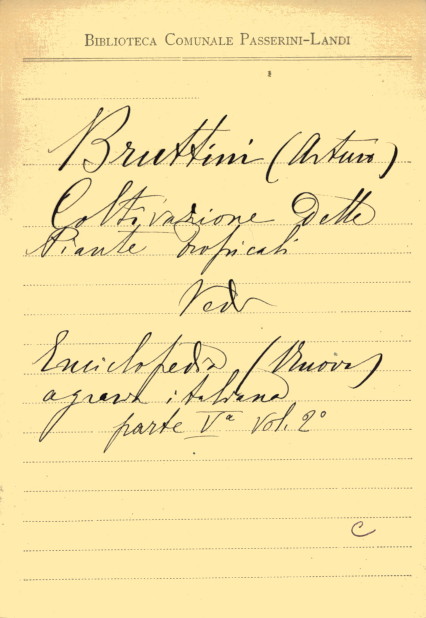 BIBLIOTECA COMUNALE PASSERINI-LANDI
Bruttini (Arturo)
Coltivazione Delle
Piante tropicali
Vedi
Enciclopedia (Nuova)
agraria italiana
parte Vª Vol. 2º
C